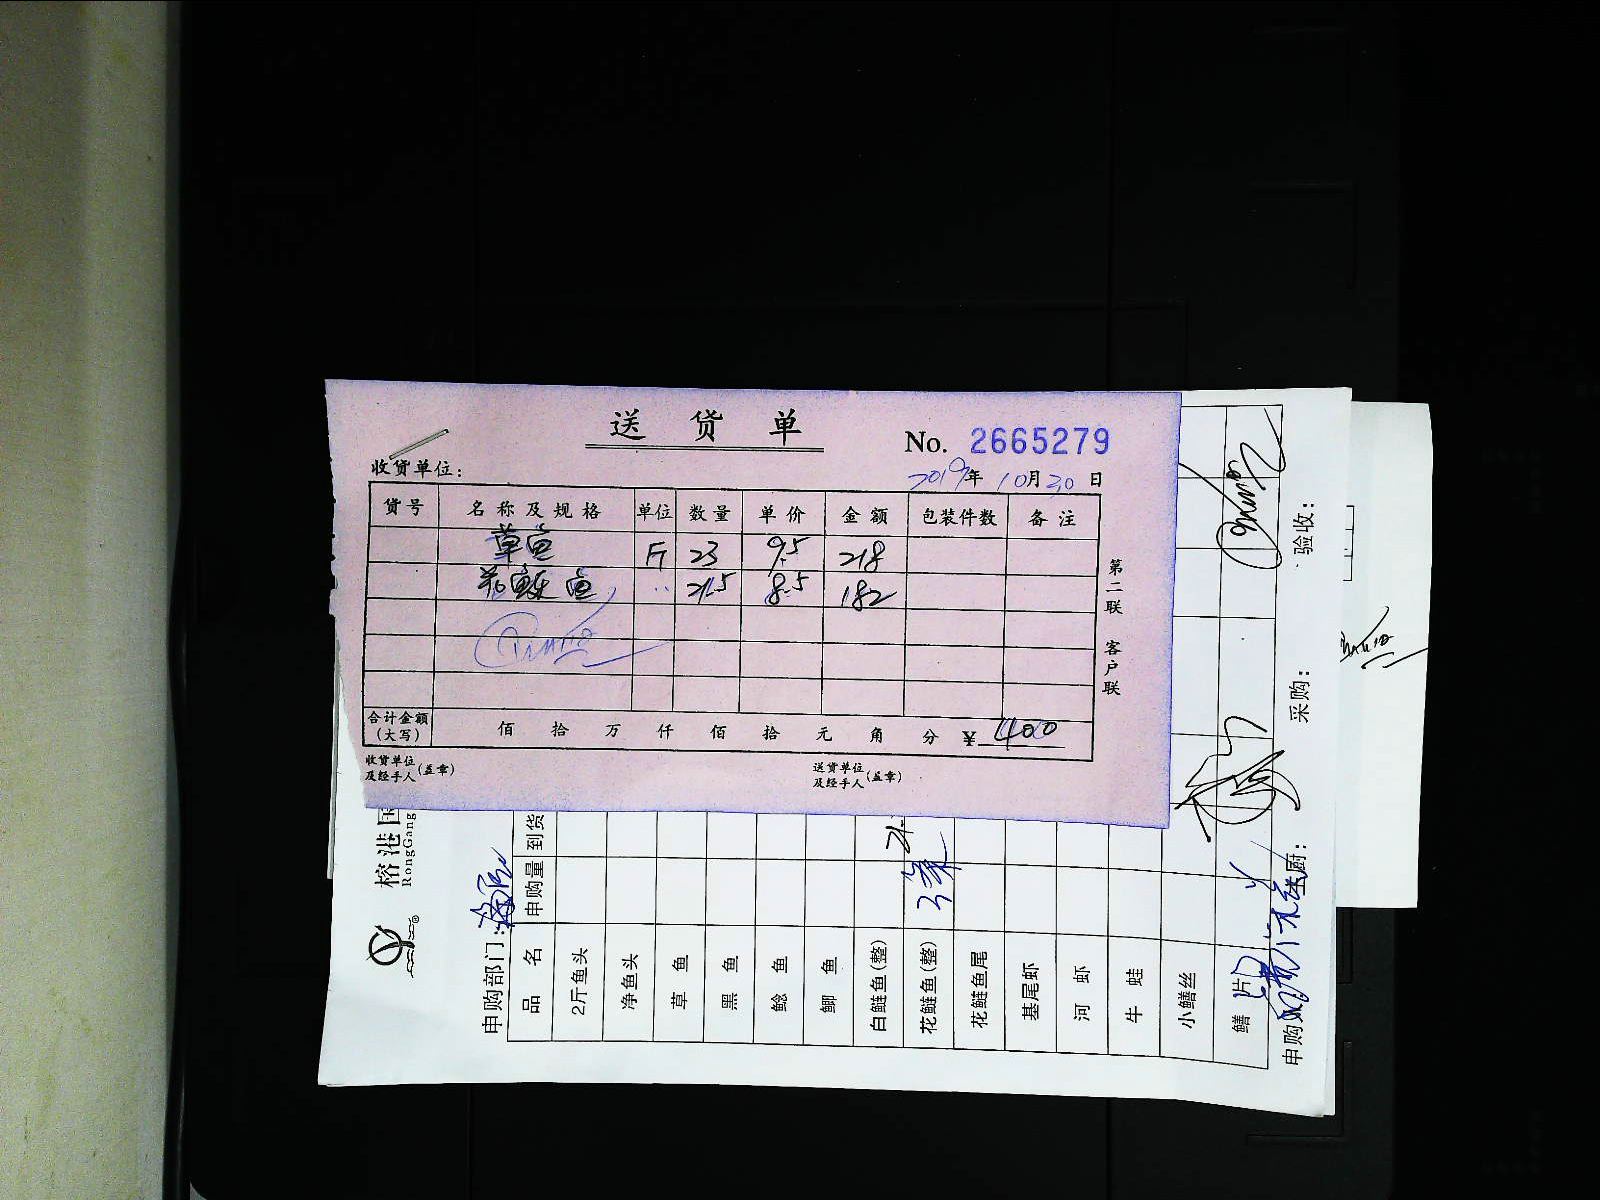 送货单
No. 2665279
收货单位:
2019年 10月20日
货号 名称及规格 单位 数量 单价 金额 包装件数 备注
草鱼 斤 23 9.5 218
花鲢鱼 21.5 8.5 182
合计金额(大写) 佰 拾 万 仟 佰 拾 元 角 分 ¥ 400
收货单位及经手人(盖章) 送货单位及经手人(盖章)
第二联 客户联
榕港国
RongGang
申购部门:
品名 申购量 到货
2斤鱼头
净鱼头
草鱼
黑鱼
鲶鱼
鲫鱼
白鲢鱼(整)
花鲢鱼(整)
花鲢鱼尾
基尾虾
河虾
牛蛙
小鳝丝
鳝片
申购 厨: 采购: 验收: